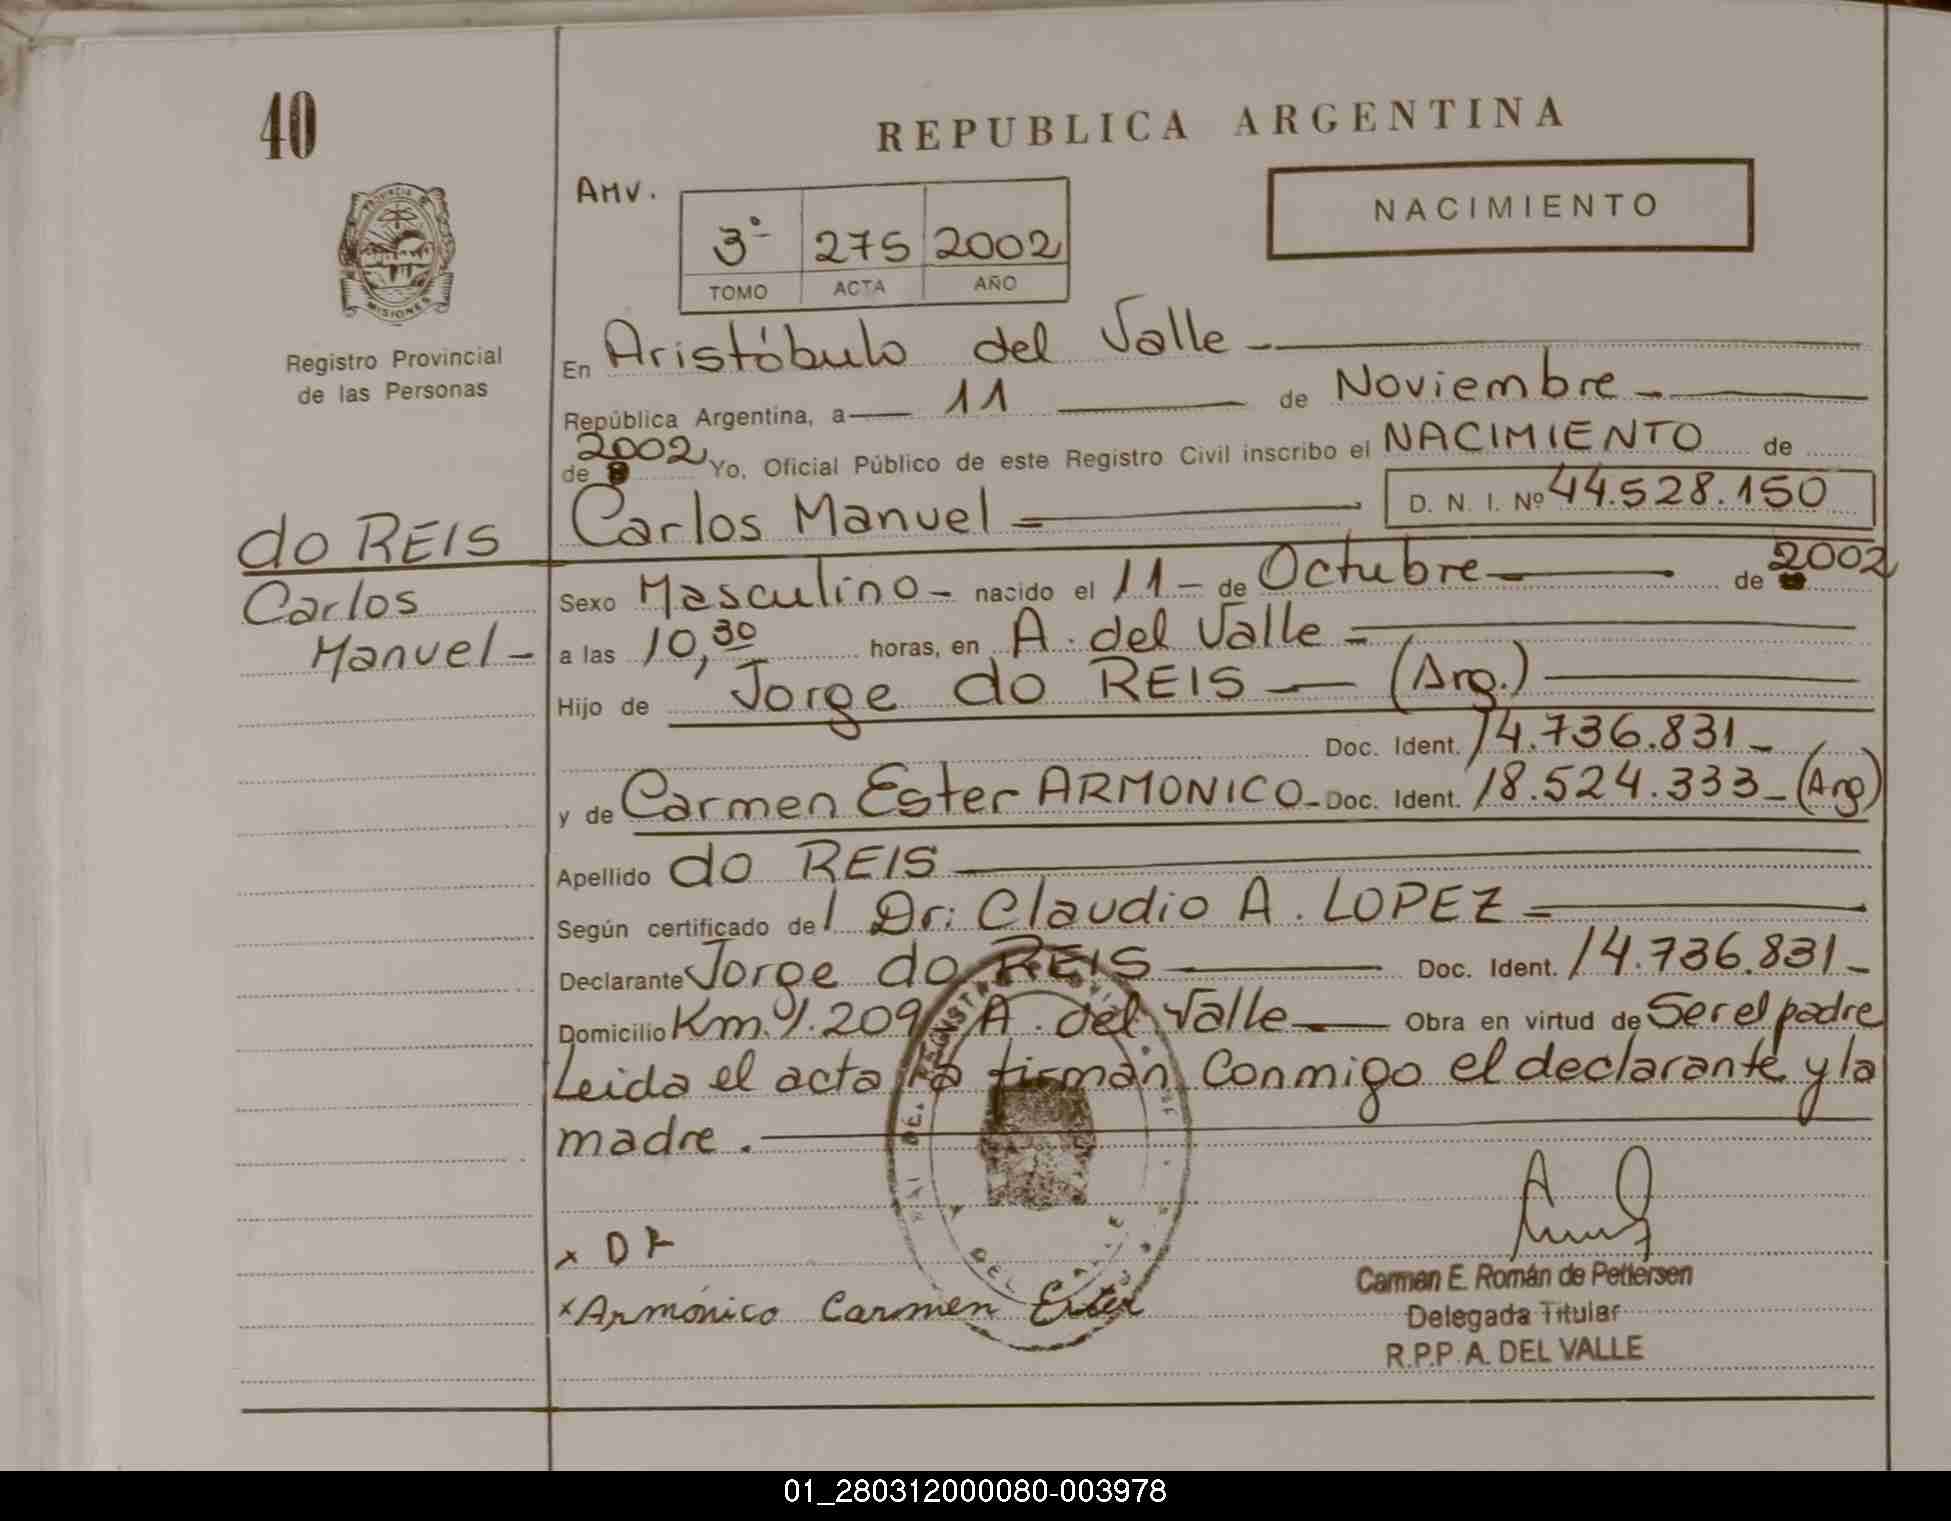 40
REPUBLICA ARGENTINA
AMV.
NACIMIENTO
3º 275 2002
TOMO ACTA AÑO
PROVINCIA DE
MISIONES
Registro Provincial
de las Personas
En Aristóbulo del Valle
República Argentina, a 11 de Noviembre
de 2002 Yo, Oficial Público de este Registro Civil inscribo el NACIMIENTO de
Carlos Manuel D. N. I. Nº 44.528.150
do REIS
Carlos
Manuel
Sexo Masculino nacido el 11 de Octubre de 2002
a las 10,30 horas, en A. del Valle
Hijo de Jorge do REIS (Arg.)
Doc. Ident. 14.736.831
y de Carmen Ester ARMONICO Doc. Ident. 18.524.333 (Arg)
Apellido do REIS
Según certificado del Dr: Claudio A. LOPEZ
Declarante Jorge do REIS Doc. Ident. 14.736.831
Domicilio Km. 209 A. del Valle Obra en virtud de Ser el padre
Leida el acta la firman Conmigo el declarante y la
madre.
x D R
x Armónico Carmen Ester
DEL VALLE
Carmen E. Román de Pettersen
Delegada Titular
R.P.P. A. DEL VALLE
01_280312000080-003978